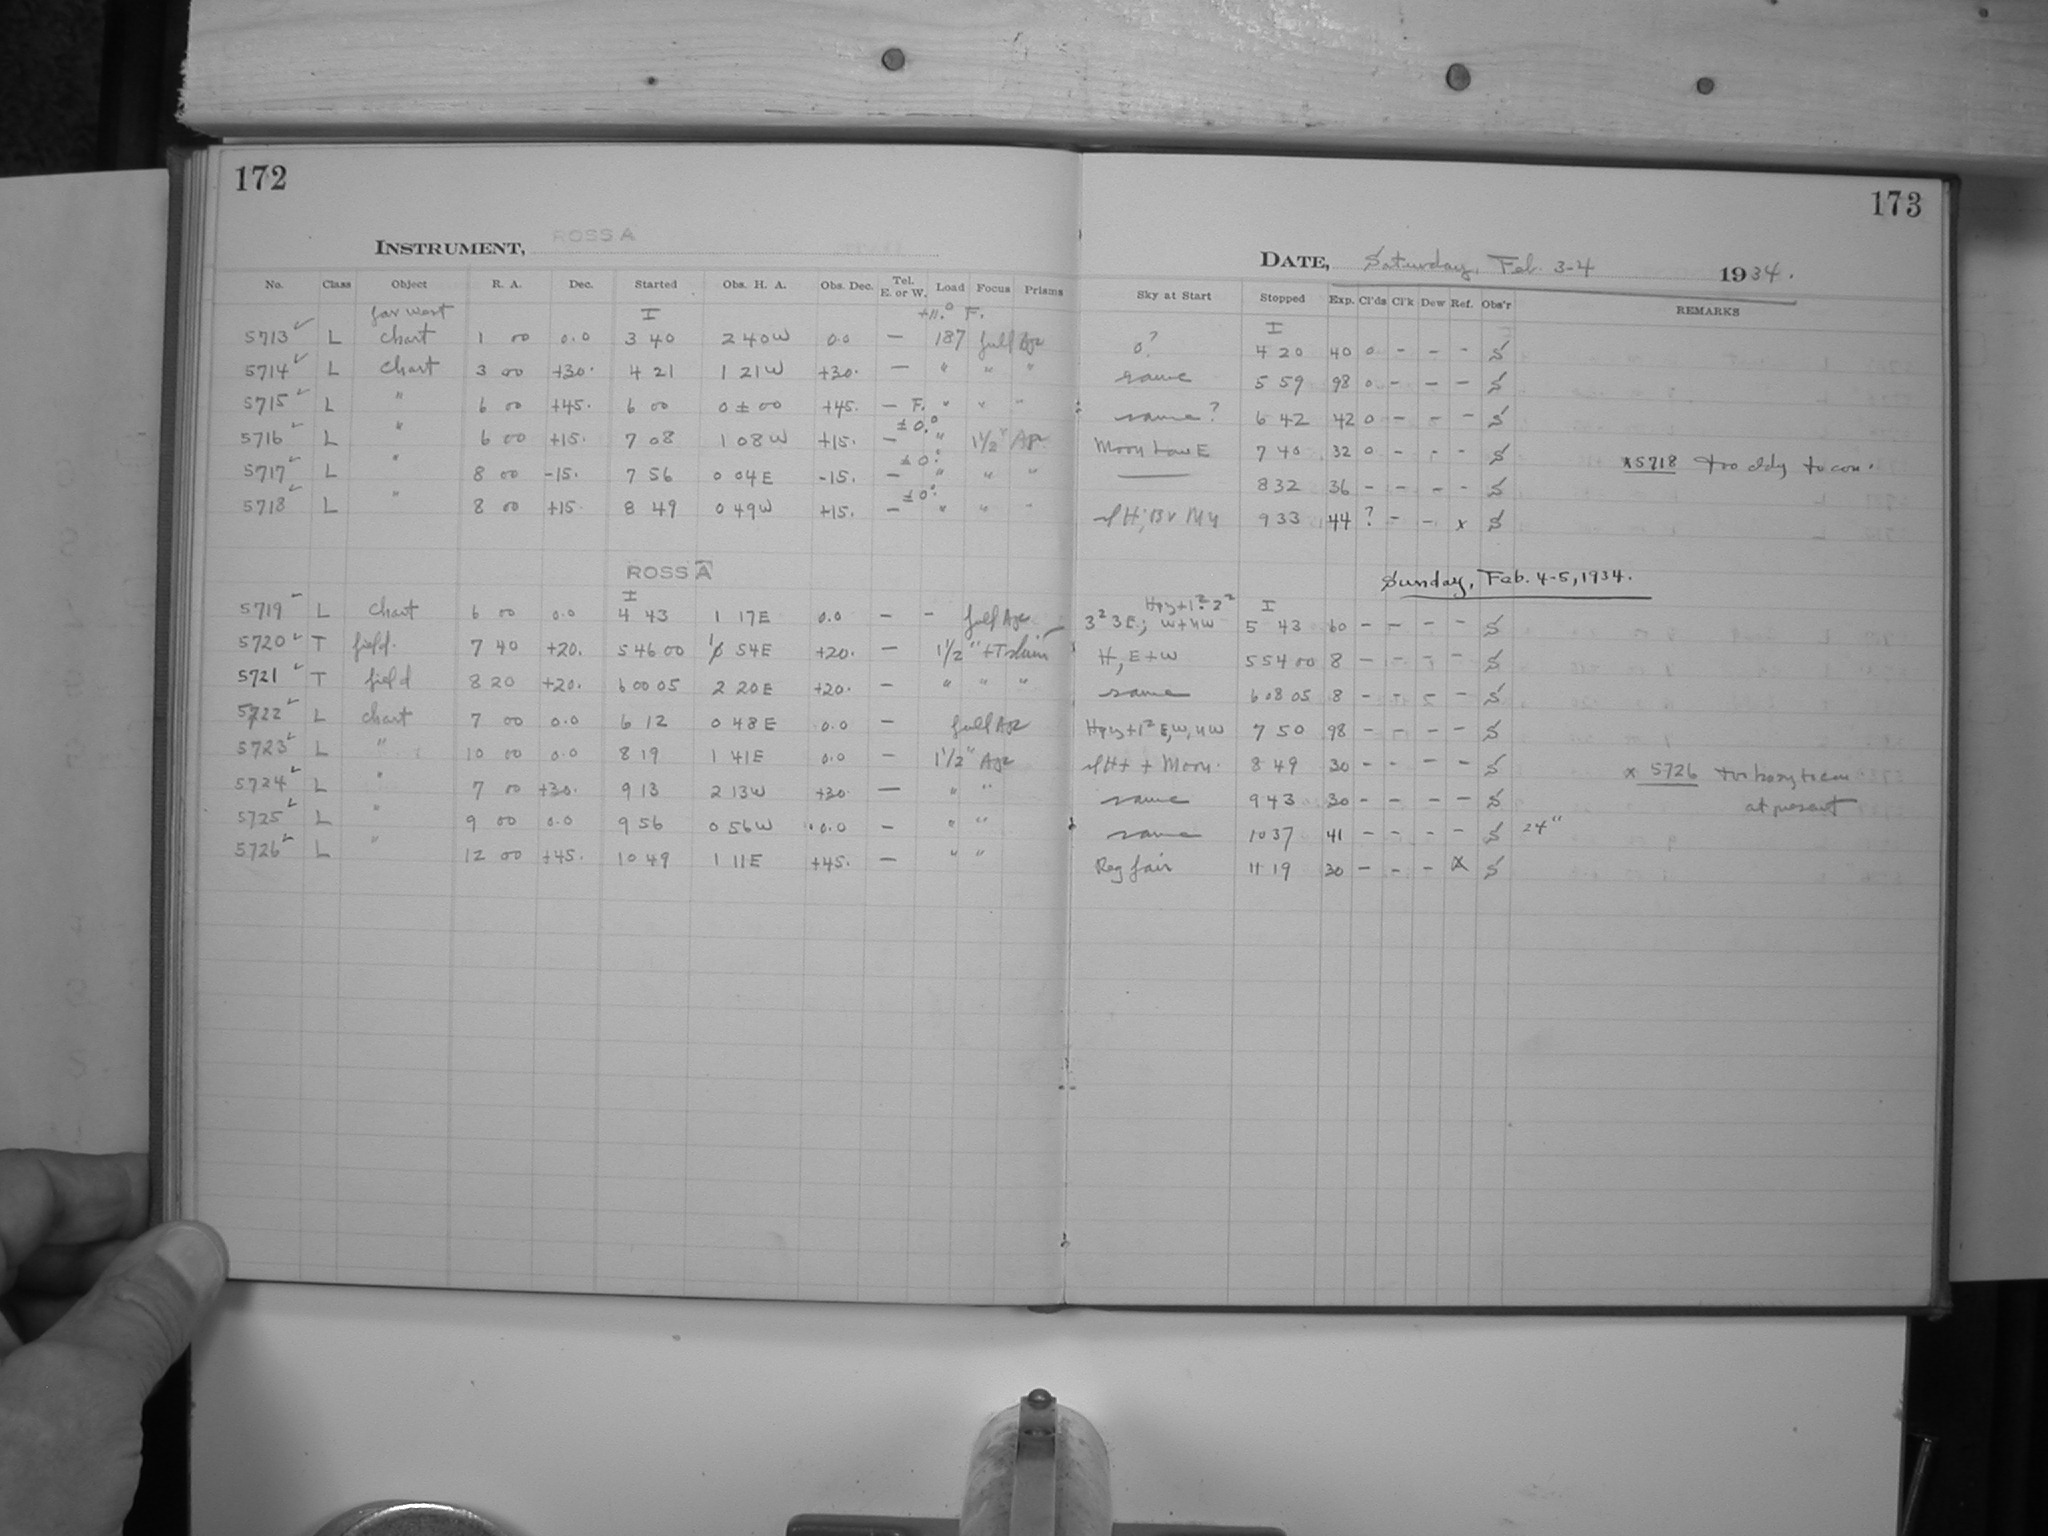 172
173
INSTRUMENT, ROSS A
DATE, Saturday, Feb. 3-4 1934.
No. Class Object R. A. Dec. Started Obs. H. A. Obs. Dec. Tel. E. or W. Load Focus Prisms Sky at Start Stopped Exp. Cl'ds Cl'k Dew Ref. Obs'r REMARKS
far west I +11.° F. I
5713 L chart 1 00 0.0 3 40 2 40 W 0.0 — 187 full Age 0? 4 20 40 0 - - - S
5714 L chart 3 00 +30. 4 21 1 21 W +30. — " " " same 5 59 98 0 - - - S
5715 L " 6 00 +45. 6 00 0 ± 00 +45. — F. " " " same? 6 42 42 0 - - - S
± 0.°
5716 L " 6 00 +15. 7 08 1 08 W +15. — " 1½" Age Moon Low E 7 40 32 0 - - - S
x 5718 too cldy to con.
± 0.°
5717 L " 8 00 -15. 7 56 0 04 E -15. — " " " — 8 32 36 - - - - S
± 0.°
5718 L " 8 00 +15 8 49 0 49 W +15. — " " " 9 33 44 ? - - x S
ROSS A
Sunday, Feb. 4-5, 1934.
I I
5719 L chart 6 00 0.0 4 43 1 17 E 0.0 — - full Age 5 43 60 - - - - S
5720 T field. 7 40 +20. 5 46 00 1 54 E +20. — 1½" + H, E + W 5 54 00 8 - - - - S
5721 T field 8 20 +20. 6 00 05 2 20 E +20. — " " " same 6 08 05 8 - - - - S
5722 L chart 7 00 0.0 6 12 0 48 E 0.0 — full Age 7 50 98 - - - - S
5723 L " 10 00 0.0 8 19 1 41 E 0.0 — 1½" Age + Moon. 8 49 30 - - - - S
x 5726 too hazy to con
5724 L " 7 00 +30. 9 13 2 13 W +30 — " " same 9 43 30 - - - - S
at present
5725 L " 9 00 0.0 9 56 0 56 W 0.0 — " " same 10 37 41 - - - - S 24"
5726 L " 12 00 +45. 10 49 1 11 E +45. — " " Reg fair 11 19 30 - - - x S